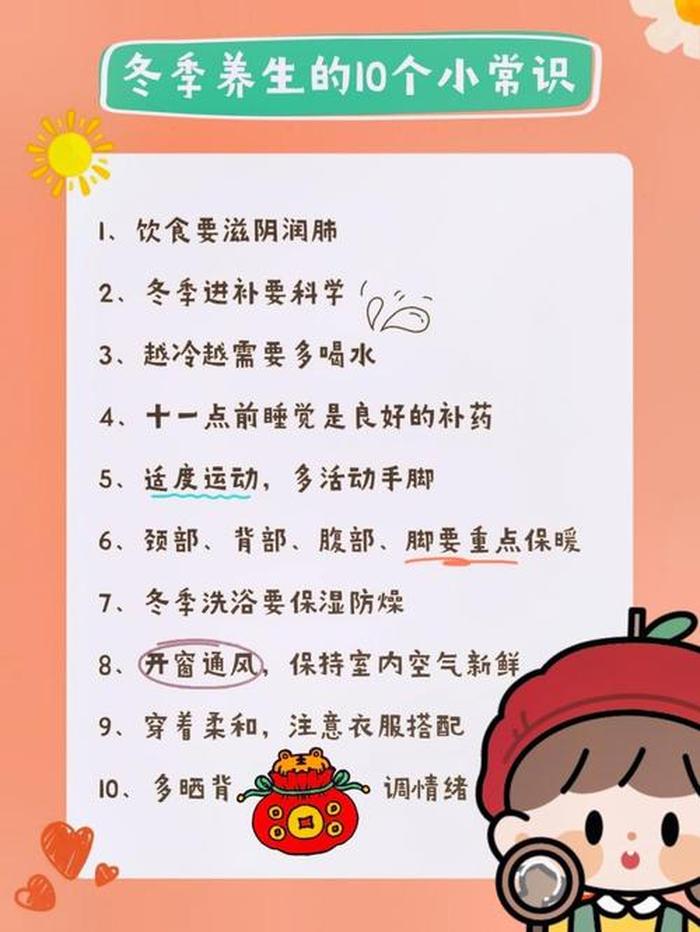 冬季养生的10个小常识
1、饮食要滋阴润肺
2、冬季进补要科学
3、越冷越需要多喝水
4、十一点前睡觉是良好的补药
5、适度运动，多活动手脚
6、颈部、背部、腹部、脚要重点保暖
7、冬季洗浴要保湿防燥
8、开窗通风，保持室内空气新鲜
9、穿着柔和，注意衣服搭配
10、多晒背 调情绪